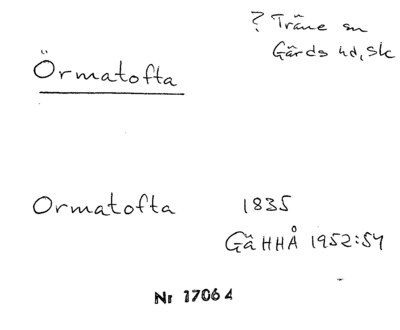 ? Träne sn
Gärds hd, Sk
Örmatofta
Ormatofta 1835
GäHHÅ 1952:54
Nr 17064